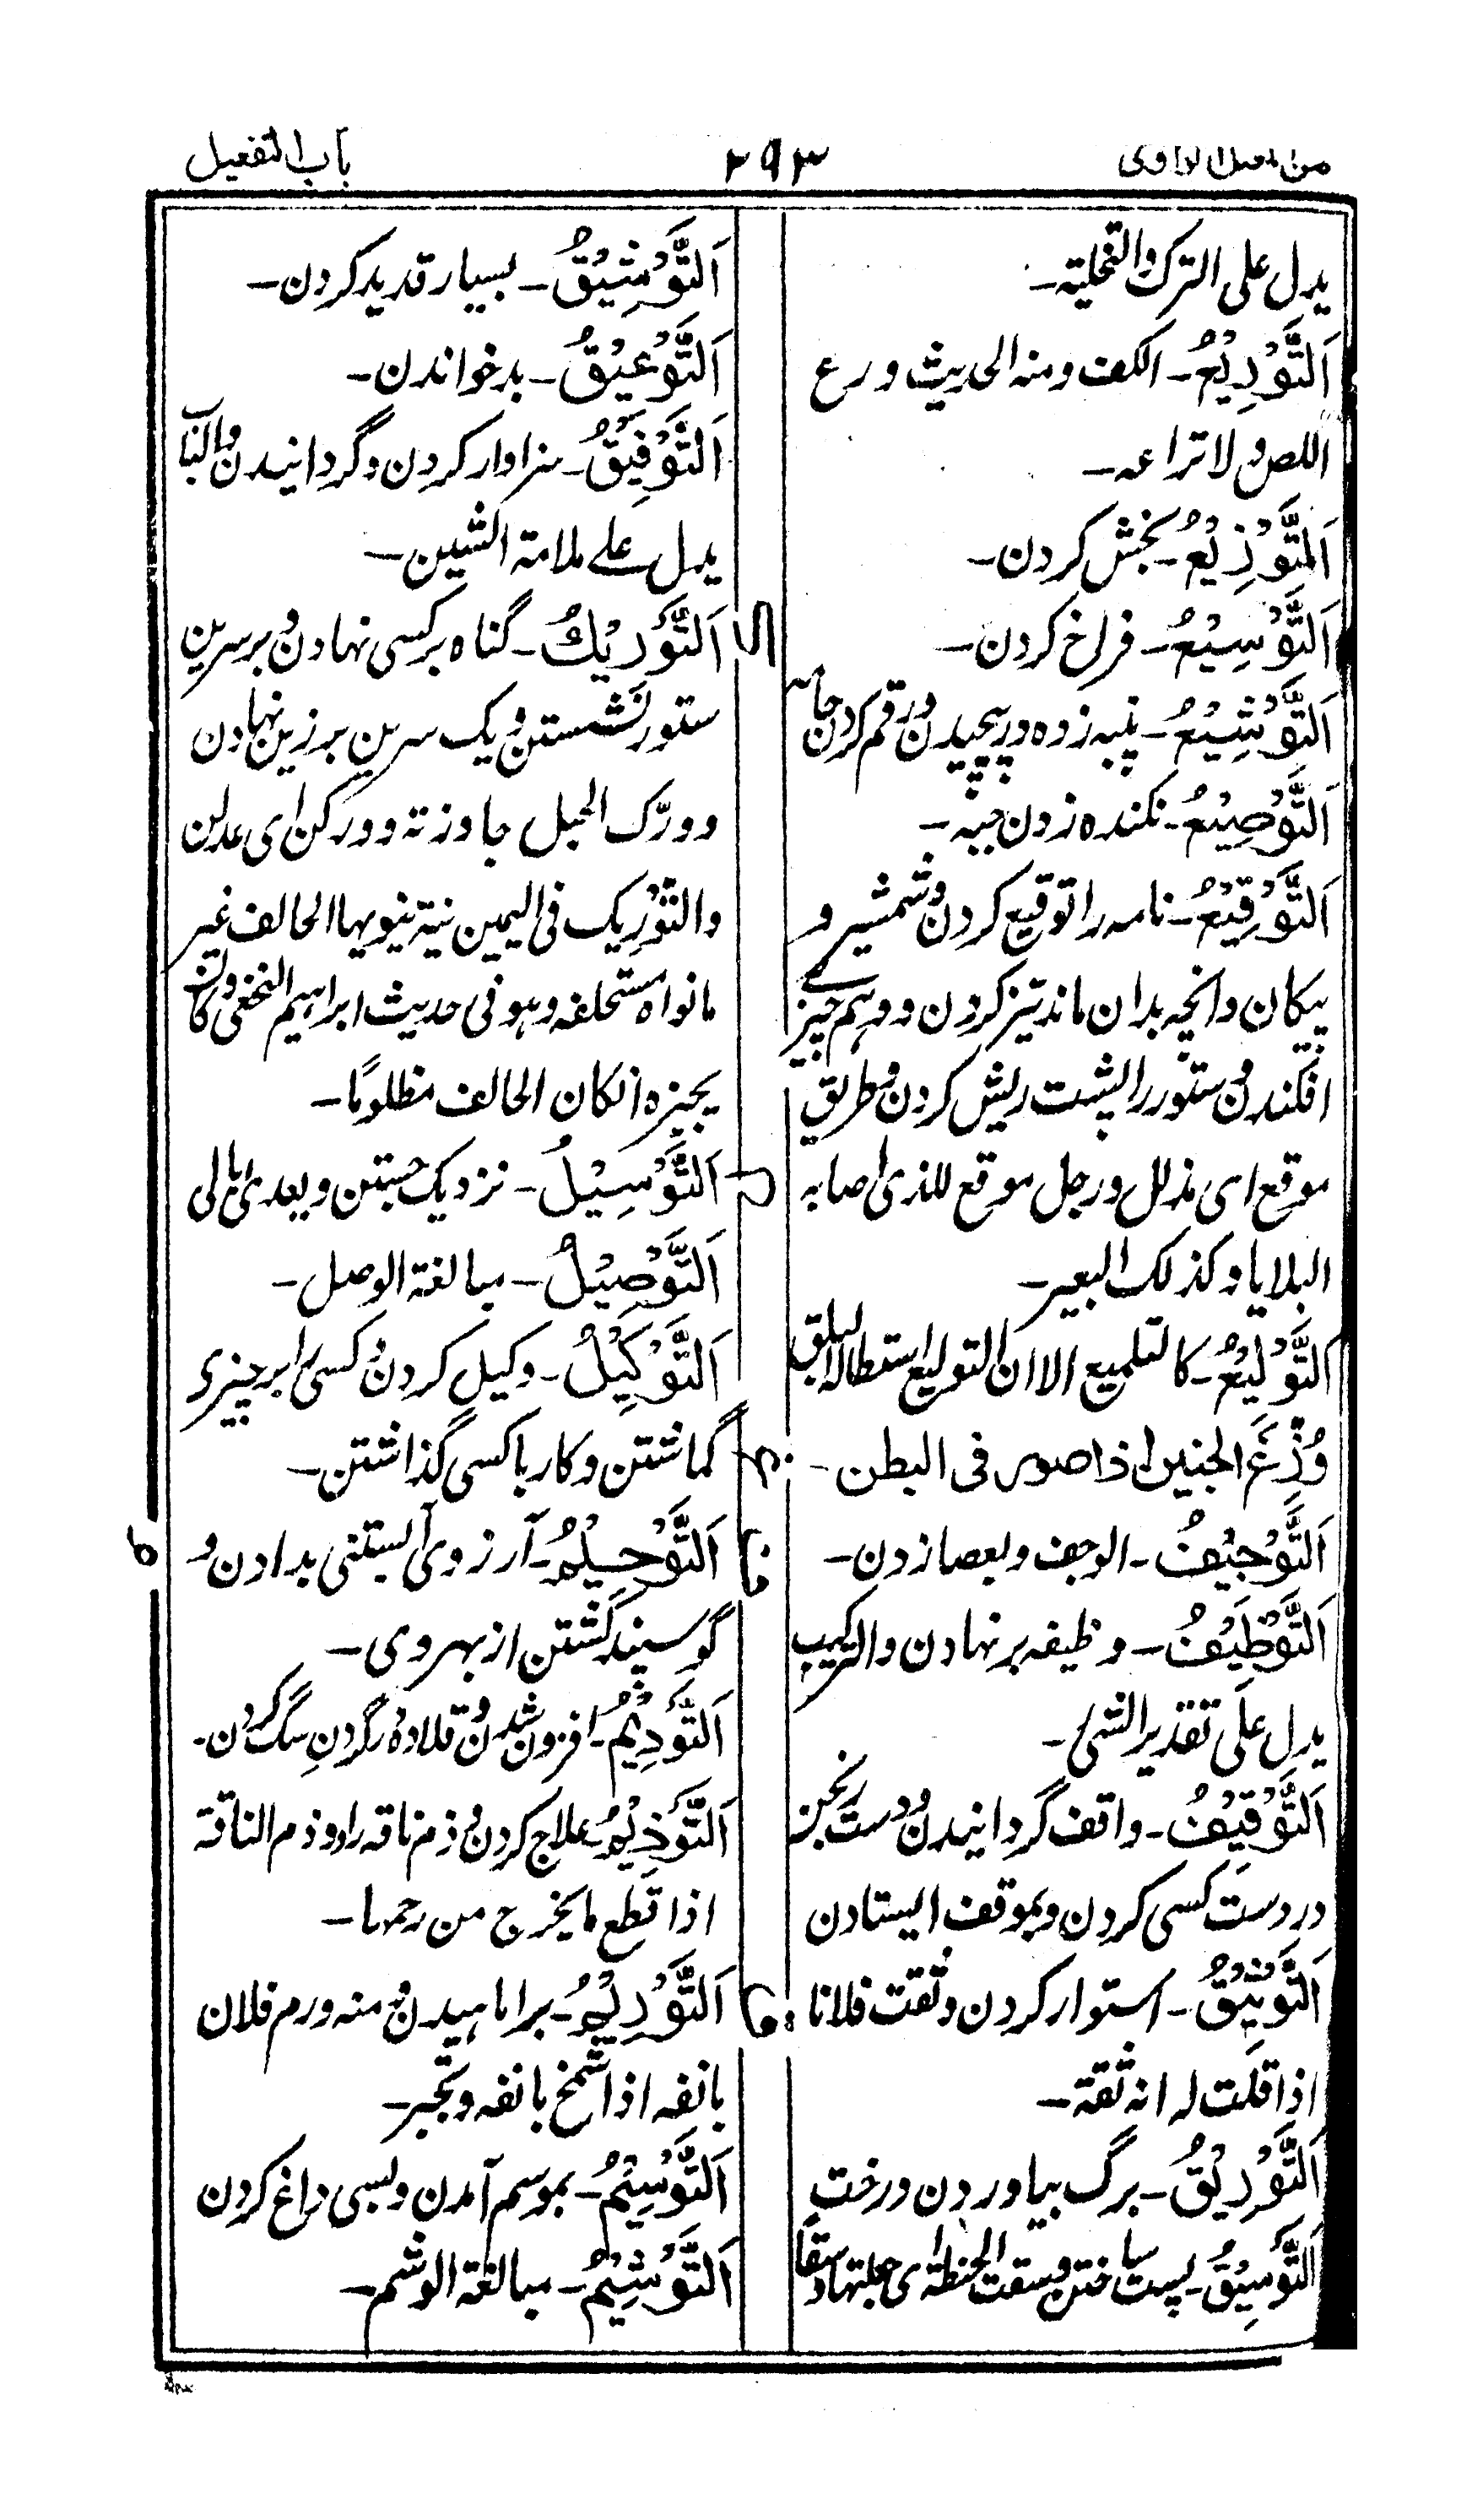 من المعتل الواوی
۲۹۳
باب التفعیل
یدل علی الترک والتخلیة۔
اَلتَّوْرِیْعُ۔ الکف ومنه الحدیث ورع
اللص ولا تراعه۔
اَلتَّوْزِیْعُ۔ بخش کردن۔
اَلتَّوْسِیْعُ۔ فراخ کردن۔
اَلتَّوْشِیْعُ۔ پنبه زده درپیچیدن ورقم کردن جامه
اَلتَّوْصِیْعُ۔ نکنده زدن جبه۔
اَلتَّوْقِیْعُ۔ نامه را توقیع کردن وشمشیر و
پیکان وانچه بدان ماند تیز کردن ووهم بر چیزے
افکندن وستور را پشت ریش کردن وطریق
موقع ای مذلل ورجل موقع للذی اصابه
البلایا وکذلک البعیر۔
اَلتَّوْلِیْعُ۔ کالتلمیع الا ان التولیع استطالة البلق
وُزِّغَ الجنین اذا صور فی البطن۔
اَلتَّوْجِیْفُ۔ الوجف وبعصا زدن۔
اَلتَّوْظِیْفُ۔ وظیفه بر نهادن والترکیب
یدل علی تقدیر الشیٔ۔
اَلتَّوْقِیْفُ۔ واقف گردانیدن ودست رنجن
در دست کسی کردن وبموقف ایستادن
اَلتَّوْثِیْقُ۔ استوار کردن وثقت فلانا
اذا قلت له انه ثقة۔
اَلتَّوْرِیْقُ۔ برگ بیاوردن درخت
اَلتَّوْسِیْقُ۔ پست ساختن وسقت الحنطة ای جعلتها وسقا
اَلتَّوْشِیْقُ۔ بسیار قدید کردن۔
اَلتَّوْعِیْقُ۔ بدخواندن۔
اَلتَّوْفِیْقُ۔ سزاوار کردن وگردانیدن والباب
یدل علے ملامة الشین۔
ک اَلتَّوْرِیْكُ۔ گناه بر کسی نهادن وبر سرین
ستور نشستن ویک سرین بر زین نهادن
وورّک الجبل جاوزته وورکن ای عدلن
والتَّوْرِیک فی الیمین نیة ینویها الحالف غیر
ما نواه مستحلفه وهو فی حدیث ابراهیم النخعی وکان
یجیزه ان کان الحالف مظلومًا۔
ل اَلتَّوْسِیْلُ۔ نزدیک جستن ویعدی بالی
اَلتَّوْصِیْلُ۔ مبالغة الوصل۔
اَلتَّوْکِیْلُ۔ وکیل کردن وکسی را بر چیزی
گماشتن وکار با کسی گذاشتن۔
اَلتَّوْحِیْمُ۔ آرزوی آبستنی بدادن و
گوسپند کشتن از بهر وی۔
اَلتَّوْذِیْمُ۔ افزون شدن وقلاده در گردن سگ کردن۔
اَلتَّوْذِیْمُ۔ علاج کردن وذم ناقه را ووذم الناقة
اذا قطع ما یخرج من رحمها۔
اَلتَّوْرِیْمُ۔ برآماهیدن ومنه ورم فلان
بانفه اذا شمخ بانفه وتجبر۔
اَلتَّوْسِیْمُ۔ بموسم آمدن وبسی داغ کردن
اَلتَّوْشِیْمُ۔ مبالغة الوشم۔